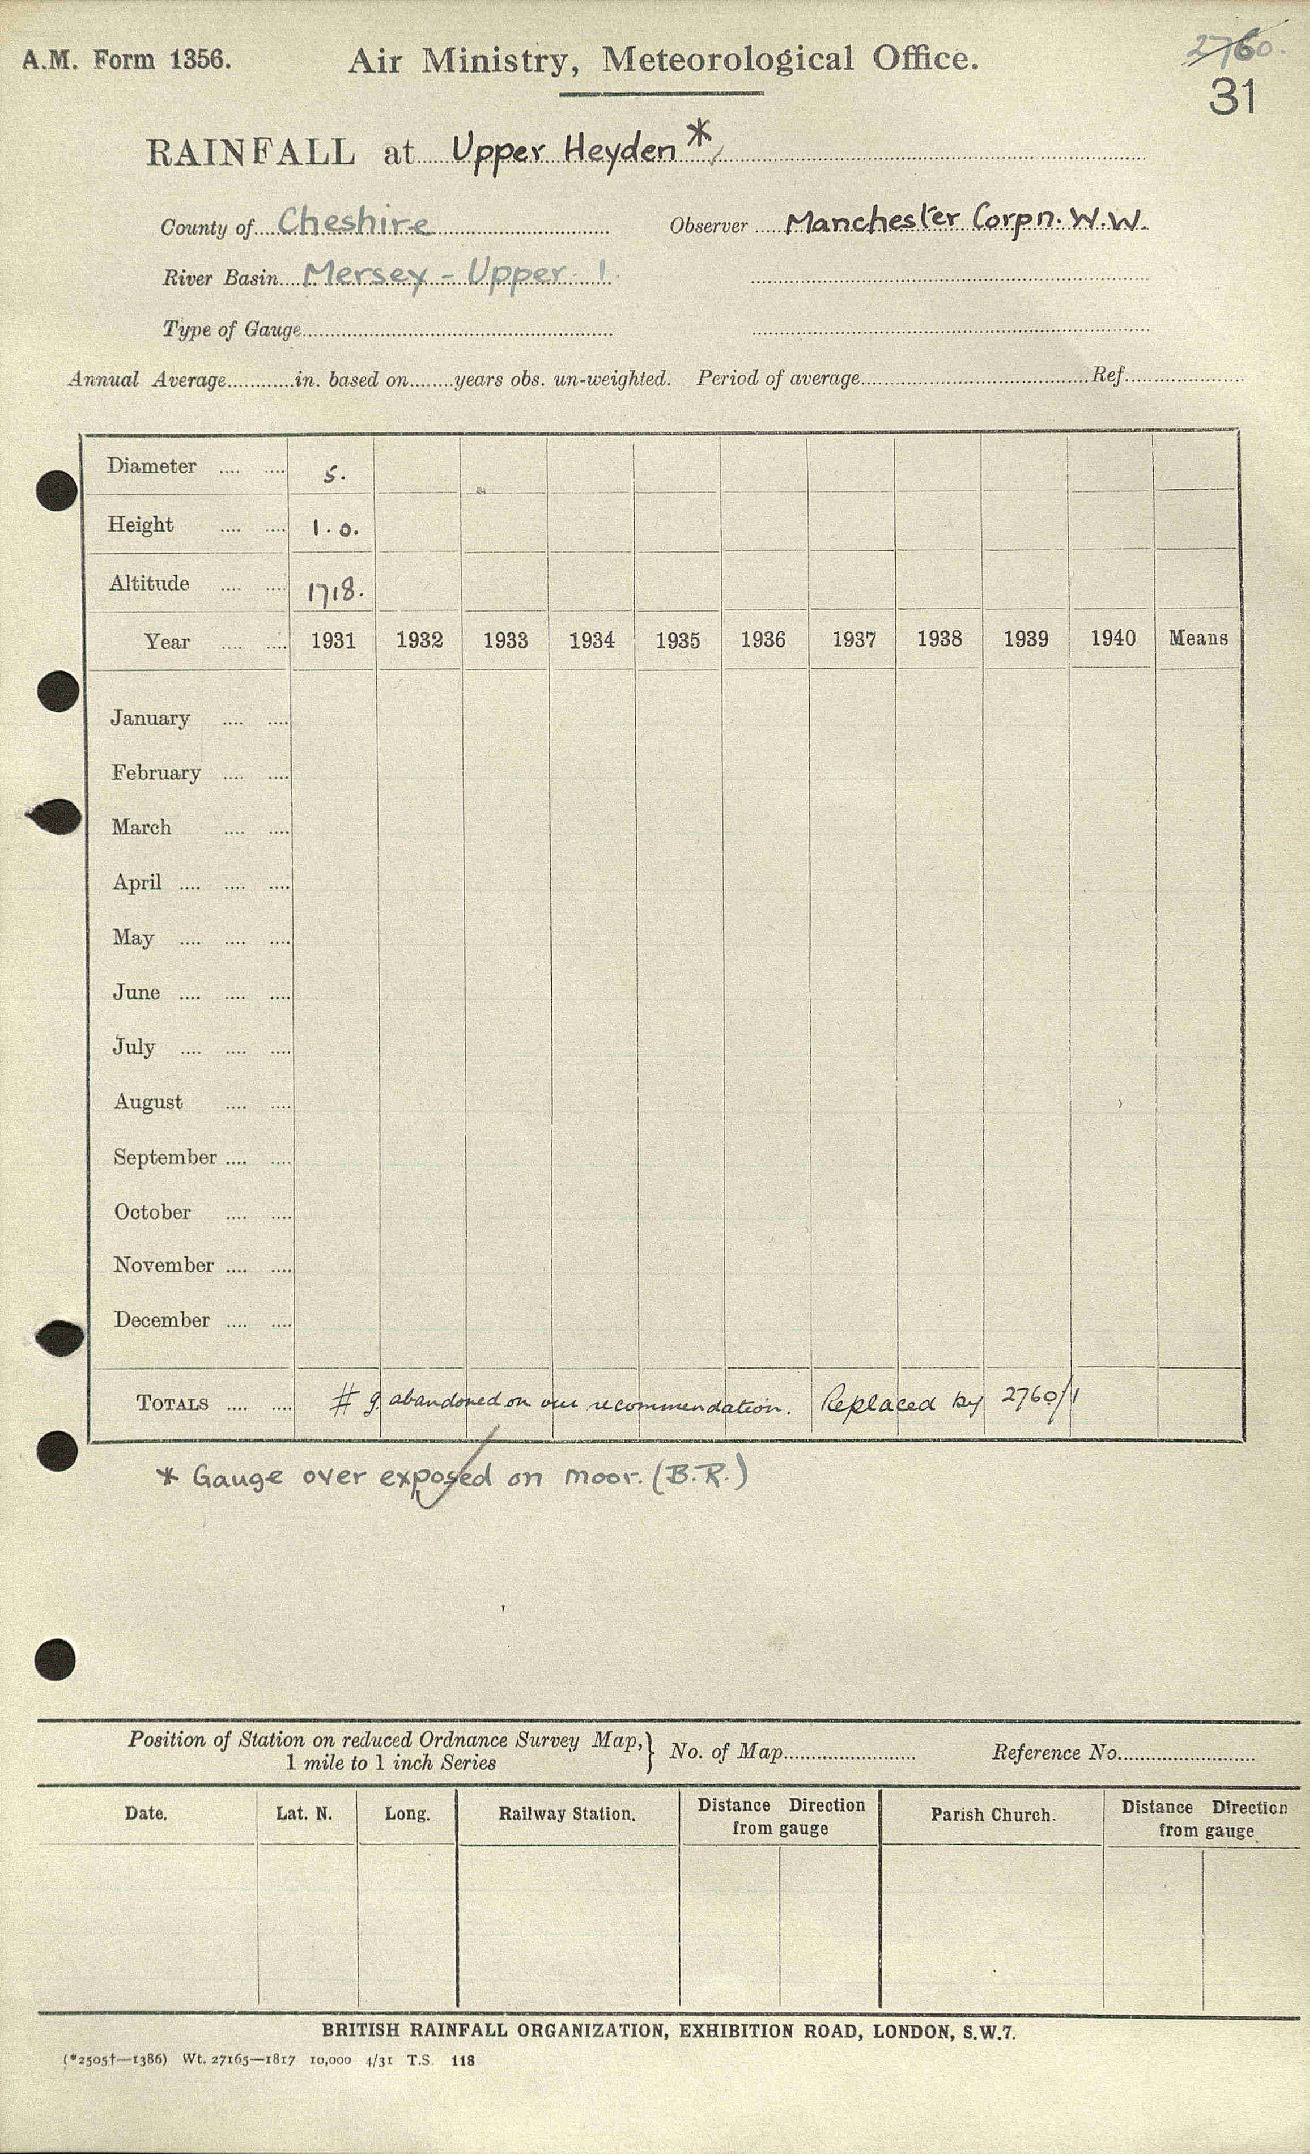 A.M. Form 1356.
Air Ministry, Meteorological Office.
2760.
31
RAINFALL at Upper Heyden *
County of Cheshire Observer Manchester Corpn. W.W.
River Basin Mersey - Upper 1.
Type of Gauge
Annual Average in. based on years obs. un-weighted. Period of average Ref.
Diameter 5.
Height 1.0.
Altitude 1718.
Year 1931 1932 1933 1934 1935 1936 1937 1938 1939 1940 Means
January
February
March
April
May
June
July
August
September
October
November
December
TOTALS # g abandoned on our recommendation. Replaced by 2760/1
* Gauge over exposed on moor. (B.R.)
Position of Station on reduced Ordnance Survey Map, } No. of Map Reference No.
1 mile to 1 inch Series
Date. Lat. N. Long. Railway Station. Distance Direction from gauge Parish Church. Distance Direction from gauge
BRITISH RAINFALL ORGANIZATION, EXHIBITION ROAD, LONDON, S.W.7.
(*2505†—1386) Wt. 27165—1817 10,000 4/31 T.S. 118